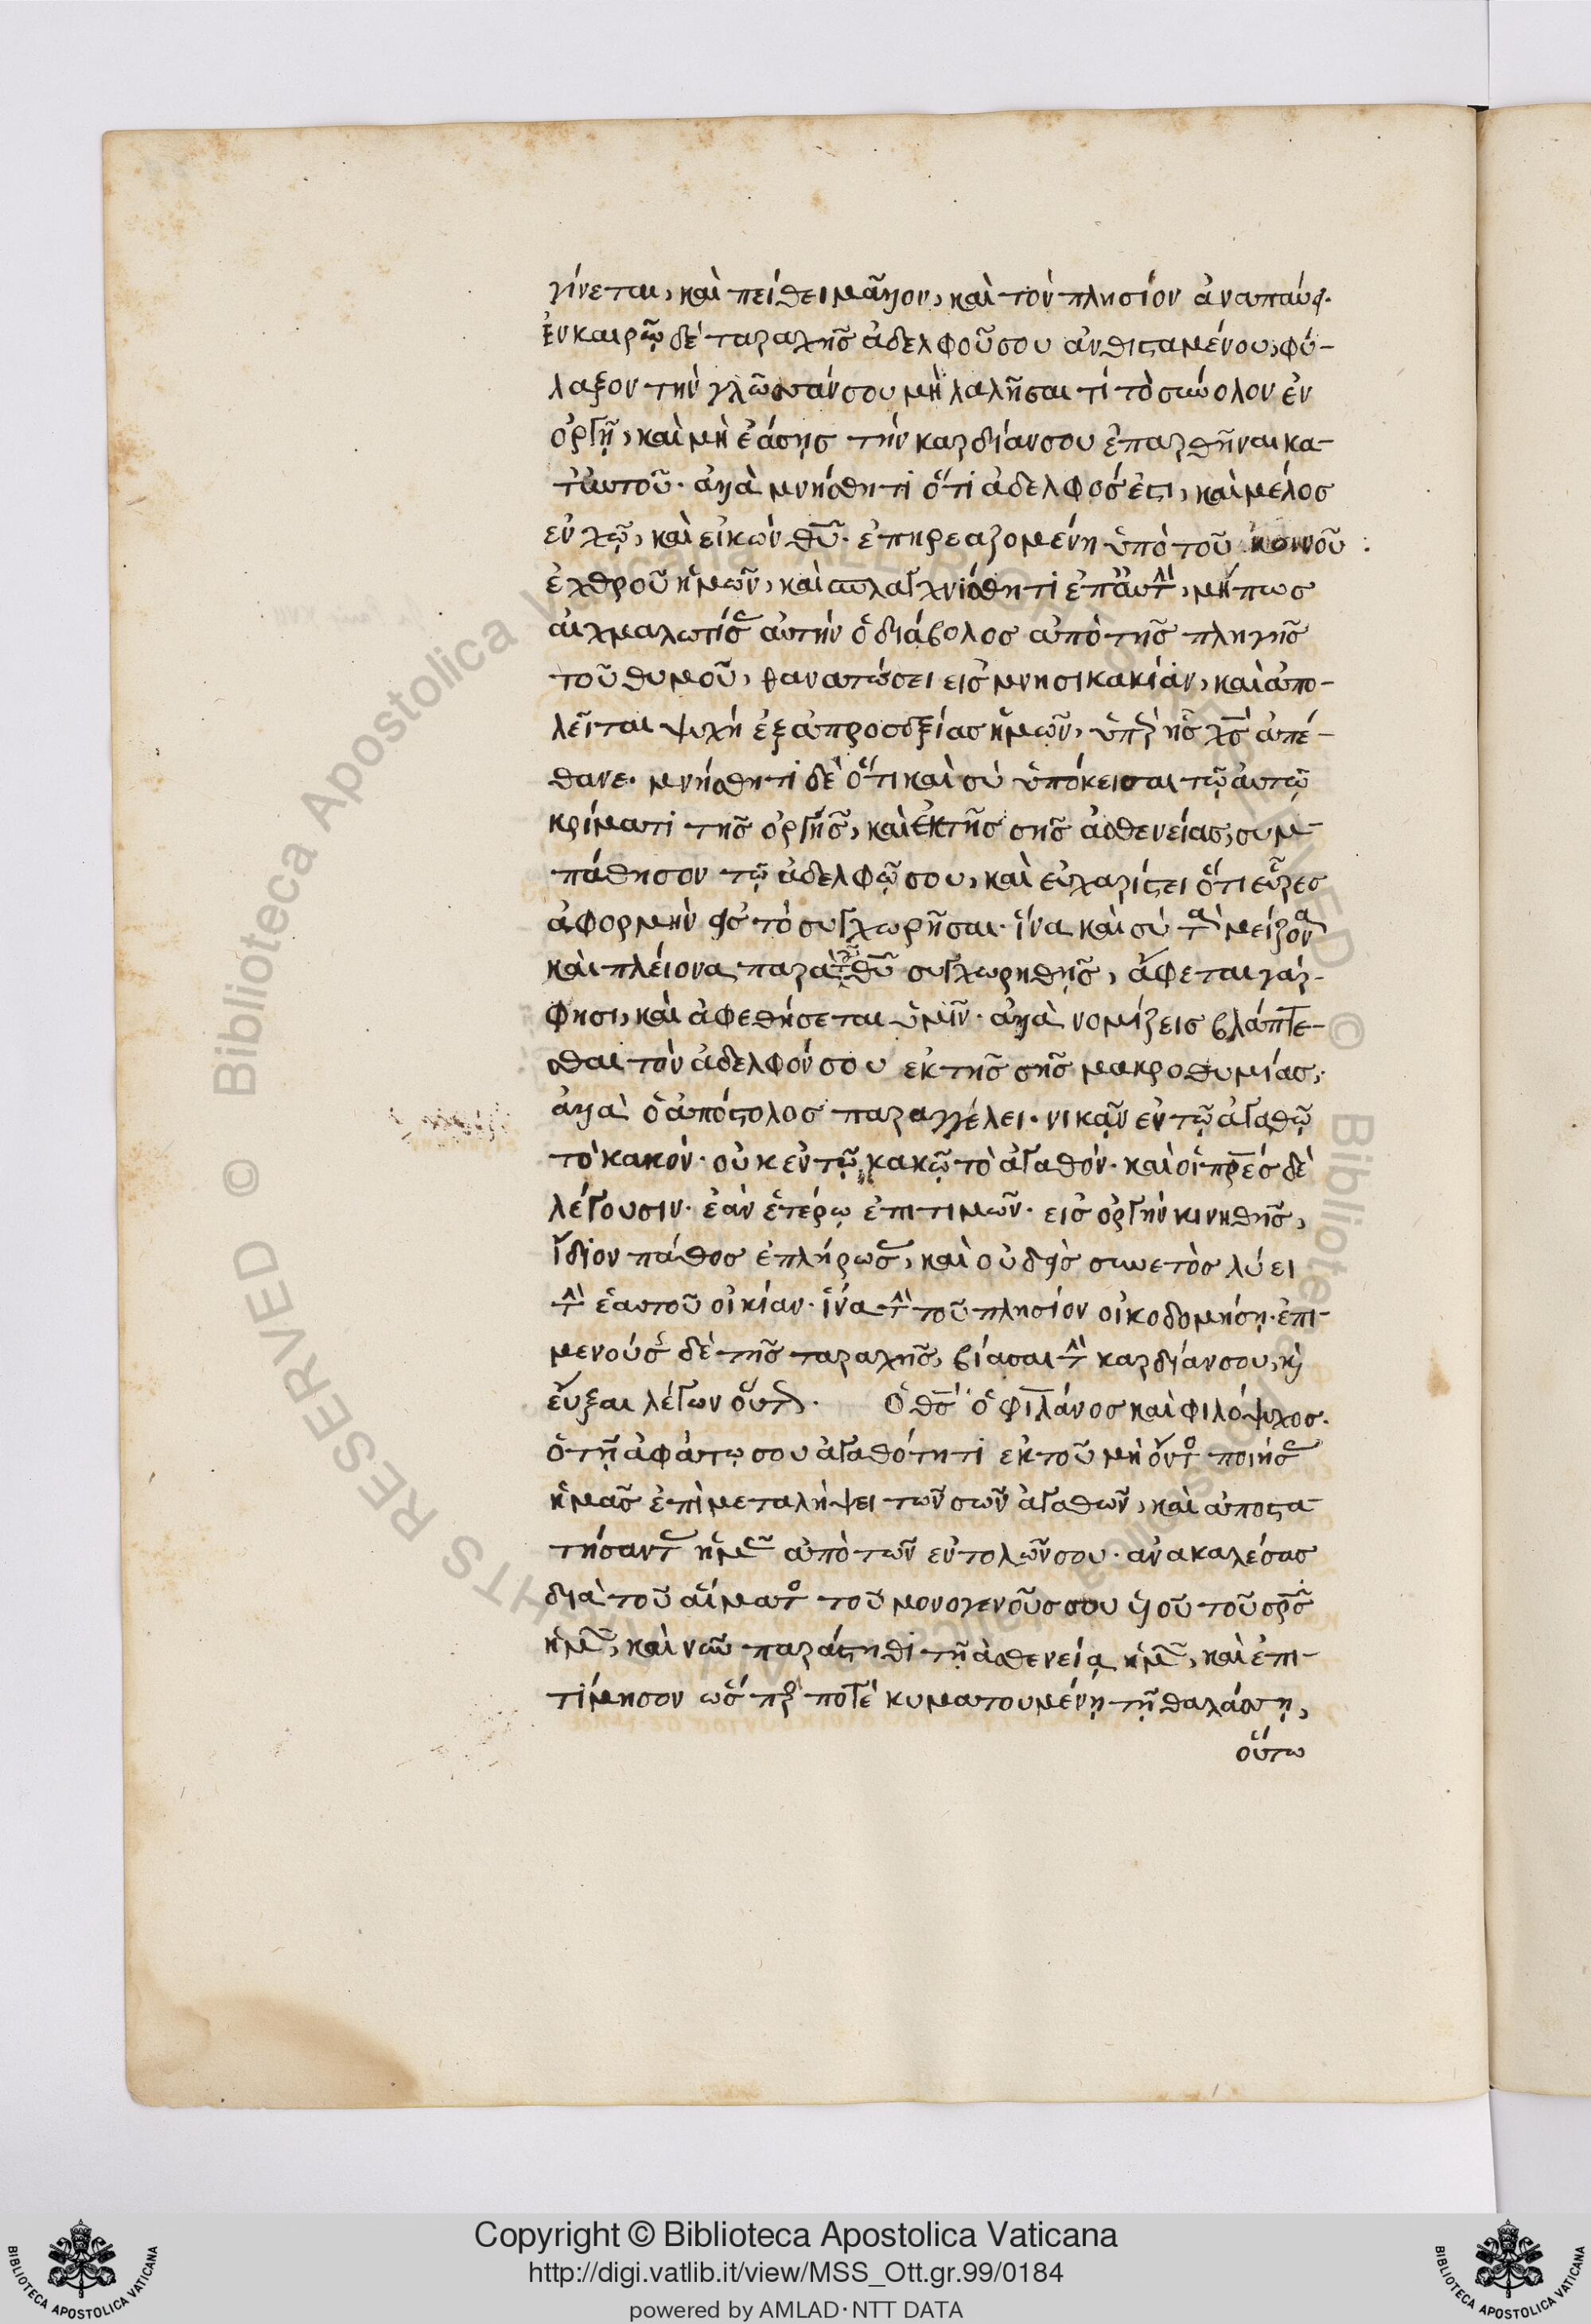 γίνεται, καὶ πείθει μᾶλλον, καὶ τὸν πλησίον ἀναπαύει.
Ἐν καιρῷ δὲ ταραχῆς ἀδελφοῦ σου ἀνθισταμένου, φύ-
λαξον τὴν γλῶσσάν σου μὴ λαλῆσαί τι τὸ σύνολον ἐν
ὀργῇ, καὶ μὴ ἐάσῃς τὴν καρδίαν σου ἐπαρθῆναι κα-
τ' αὐτοῦ. ἀλλὰ μνήσθητι ὅτι ἀδελφός ἐστι, καὶ μέλος
ἐν χῷ, καὶ εἰκὼν θῦ. ἐπηρεαζομένη ὑπὸ τοῦ κοινοῦ
ἐχθροῦ ἡμῶν, καὶ σπλαγχνίσθητι ἐπ' αὐτὴν, μήπως
αἰχμαλωτίσας αὐτὴν ὁ διάβολος ἀπὸ τῆς πληγῆς
τοῦ θυμοῦ, θανατώσει εἰς μνησικακίαν, καὶ ἀπο-
λεῖται ψυχὴ ἐξ ἀπροσεξίας ἡμῶν, ὑπὲρ ἧς χς ἀπέ-
θανε. μνήσθητι δὲ ὅτι καὶ σὺ ὑπόκεισαι τῷ αὐτῷ
κρίματι τῆς ὀργῆς, καὶ ἐκ τῆς σῆς ἀσθενείας, συμ-
πάθησον τῷ ἀδελφῷ σου, καὶ εὐχαρίστει ὅτι εὗρες
ἀφορμὴν εἰς τὸ συγχωρῆσαι. ἵνα καὶ σὺ τὰ μείζονα
καὶ πλείονα παρὰ τοῦ θῦ συγχωρηθῇς, ἄφεται γάρ
φησι, καὶ ἀφεθήσεται ὑμῖν. ἀλλὰ νομίζεις βλάπτε-
σθαι τὸν ἀδελφόν σου ἐκ τῆς σῆς μακροθυμίας,
ἀλλὰ ὁ ἀπόστολος παραγγέλει. νικᾷν ἐν τῷ ἀγαθῷ
τὸ κακόν. οὐκ ἐν τῷ κακῷ τὸ ἀγαθόν. καὶ οἱ πρες δὲ
λέγουσιν. ἐὰν ἑτέρῳ ἐπιτιμῶν. εἰς ὀργὴν κινηθῇς,
ἴδιον πάθος ἐπλήρωσας, καὶ οὐδεὶς συνετὸς λύει
τὴν ἑαυτοῦ οἰκίαν. ἵνα τὴν τοῦ πλησίον οἰκοδομήσῃ. ἐπι-
μενούσης δὲ τῆς ταραχῆς, βίασαι τὴν καρδίαν σου, κὶ
εὖξαι λέγων οὕτως. Ὁ θς ὁ φιλάνος καὶ φιλόψυχος.
ὁ τῇ ἀφάτῳ σου ἀγαθότητι ἐκ τοῦ μὴ ὄντος ποιήσας
ἡμᾶς ἐπὶ μεταλήψει τῶν σῶν ἀγαθῶν, καὶ ἀποστα-
τήσαντας ἡμᾶς ἀπὸ τῶν ἐντολῶν σου. ἀνακαλέσας
διὰ τοῦ αἵματος τοῦ μονογενοῦς σου υἱοῦ τοῦ σρς
ἡμῶν, καὶ νῦν παράστηθι τῇ ἀσθενείᾳ ἡμῶν, καὶ ἐπι-
τίμησον ὥσπερ ποτὲ κυματουμένῃ τῇ θαλάσσῃ,
οὕτω
Copyright © Biblioteca Apostolica Vaticana
http://digi.vatlib.it/view/MSS_Ott.gr.99/0184
powered by AMLAD·NTT DATA